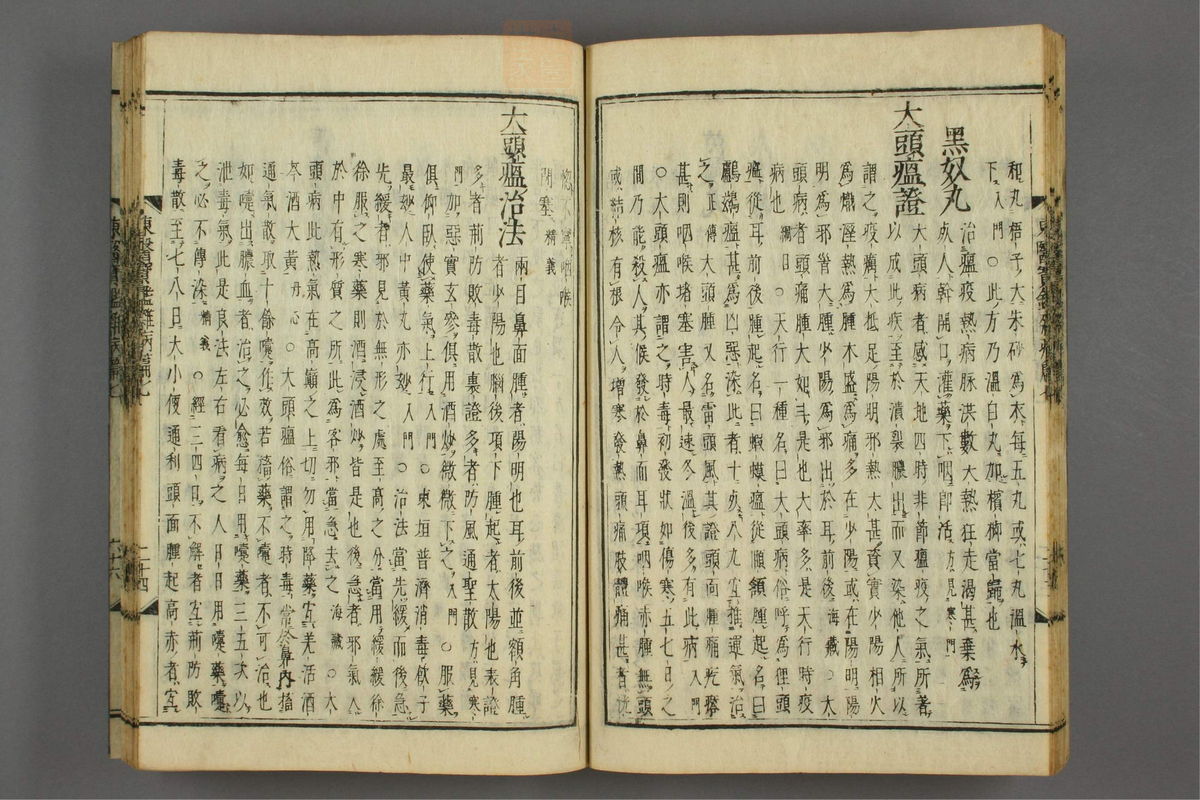 和丸梧子大朱砂爲衣每五丸或七丸溫水
下入門○此方乃溫白丸加檳榔當歸也
黑奴丸
治瘟疫熱病脉洪數大熱狂走渴甚棄爲
死人斡開口灌藥下咽卽活方見寒門
大頭瘟證
大頭病者感天地四時非節瘟疫之氣所著
以成此疾至於潰裂膿出而又染他人所以
謂之疫癘大抵足陽明邪熱太甚資實少陽相火
爲之熾濕熱爲腫木盛爲痛多在少陽或在陽明陽
明爲邪首大腫少陽爲邪出於耳前後海藏○大
頭病者頭痛腫大如斗是也大率多是天行時疫
病也綱目○天行一種名曰大頭病俗呼爲狸頭
瘟從耳前後腫起名曰蝦蟆瘟從頤頷腫起名曰
鸕鶿瘟甚爲凶惡染此者十死八九宜推運氣治
之正傳大頭腫又名雷頭風其證頭面腫痛疙瘩
甚則咽喉堵塞害人最速冬溫後多有此病入門
○大頭瘟亦謂之時毒初發狀如傷寒五七日之
間乃能殺人其候發於鼻面耳項咽喉赤腫無頭
或結核有根令人增寒發熱頭痛肢體痛甚者恍
惚不寧咽喉
閉塞精義
大頭瘟治法
兩目鼻面腫者陽明也耳前後並額角腫
者少陽也腦後項下腫起者太陽也表證
多者荊防敗毒散裏證多者防風通聖散方見寒
門加惡實玄參俱用酒炒微微下之入門○服藥
俱仰臥使藥氣上行入門○東垣普濟消毒飮子
最妙人中黃丸亦妙入門○治法當先緩而後急
先緩者邪見於無形之處至高之分當用緩緩徐
徐服之寒藥則用酒浸酒炒皆是也後急者邪氣入
於中有形質之所此爲客邪當急去之海藏○大
頭病此熱氣在高巓之上切勿用降藥宜羌活酒
芩酒大黃丹心○大頭瘟俗謂之時毒常於鼻內㗜
通氣散取十餘嚔作效若㗜藥不嚔者不可治也
如嚔出膿血者治之必愈每日用嚔藥三五次以
泄毒氣此是良法左右看病之人日日用嚔藥嚔
之必不傳染精義○經三四日不解者宜荊防敗
毒散至七八日大小便通利頭面腫起高赤者宜
東醫寶鑑雜病篇七
二十四